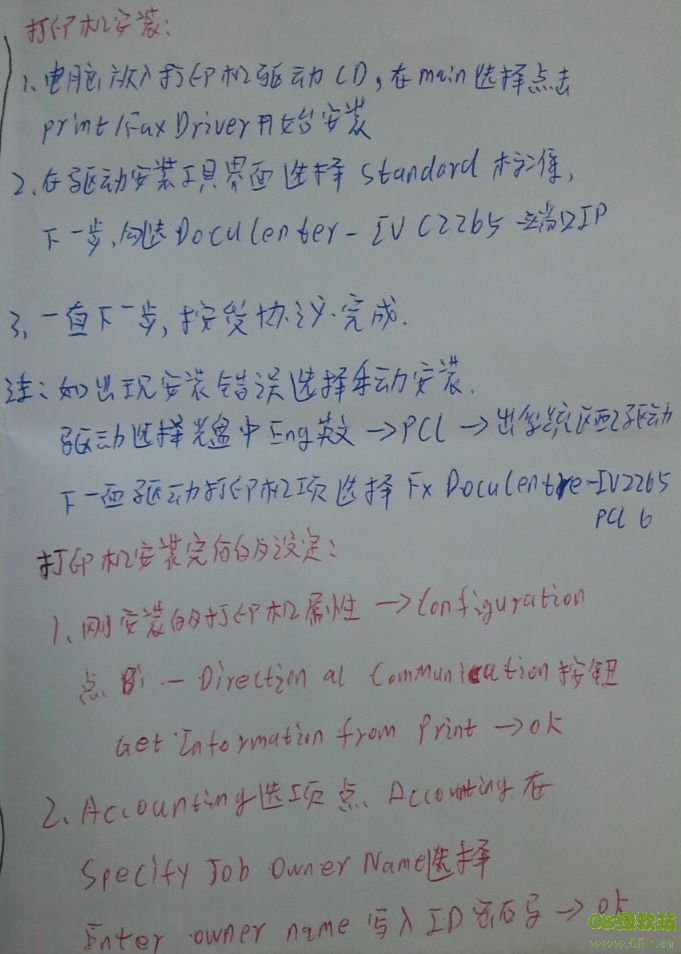 打印机安装:
1、电脑放入打印机驱动CD,在main选择点击
print/Fax Driver开始安装
2、在驱动安装工具界面选择 Standard 标准,
下一步,勾选DocuCenter-IV C2265 端口IP
3、一直下一步,接受协议完成.
注:如出现安装错误选择手动安装.
驱动选择光盘中Eng英文→PCL→出系统匹配驱动
下一面驱动打印机项选择 Fx DocuCentre-IV2265
PCL 6
打印机安装完后的设定:
1、刚安装的打印机属性→Configuration
点 Bi-Direction al Communication按钮
Get Information from Print→ok
2、Accounting选项点、Accounting在
Specify Job Owner Name选择
Enter owner name 写入ID密码→ok
OS绿软站